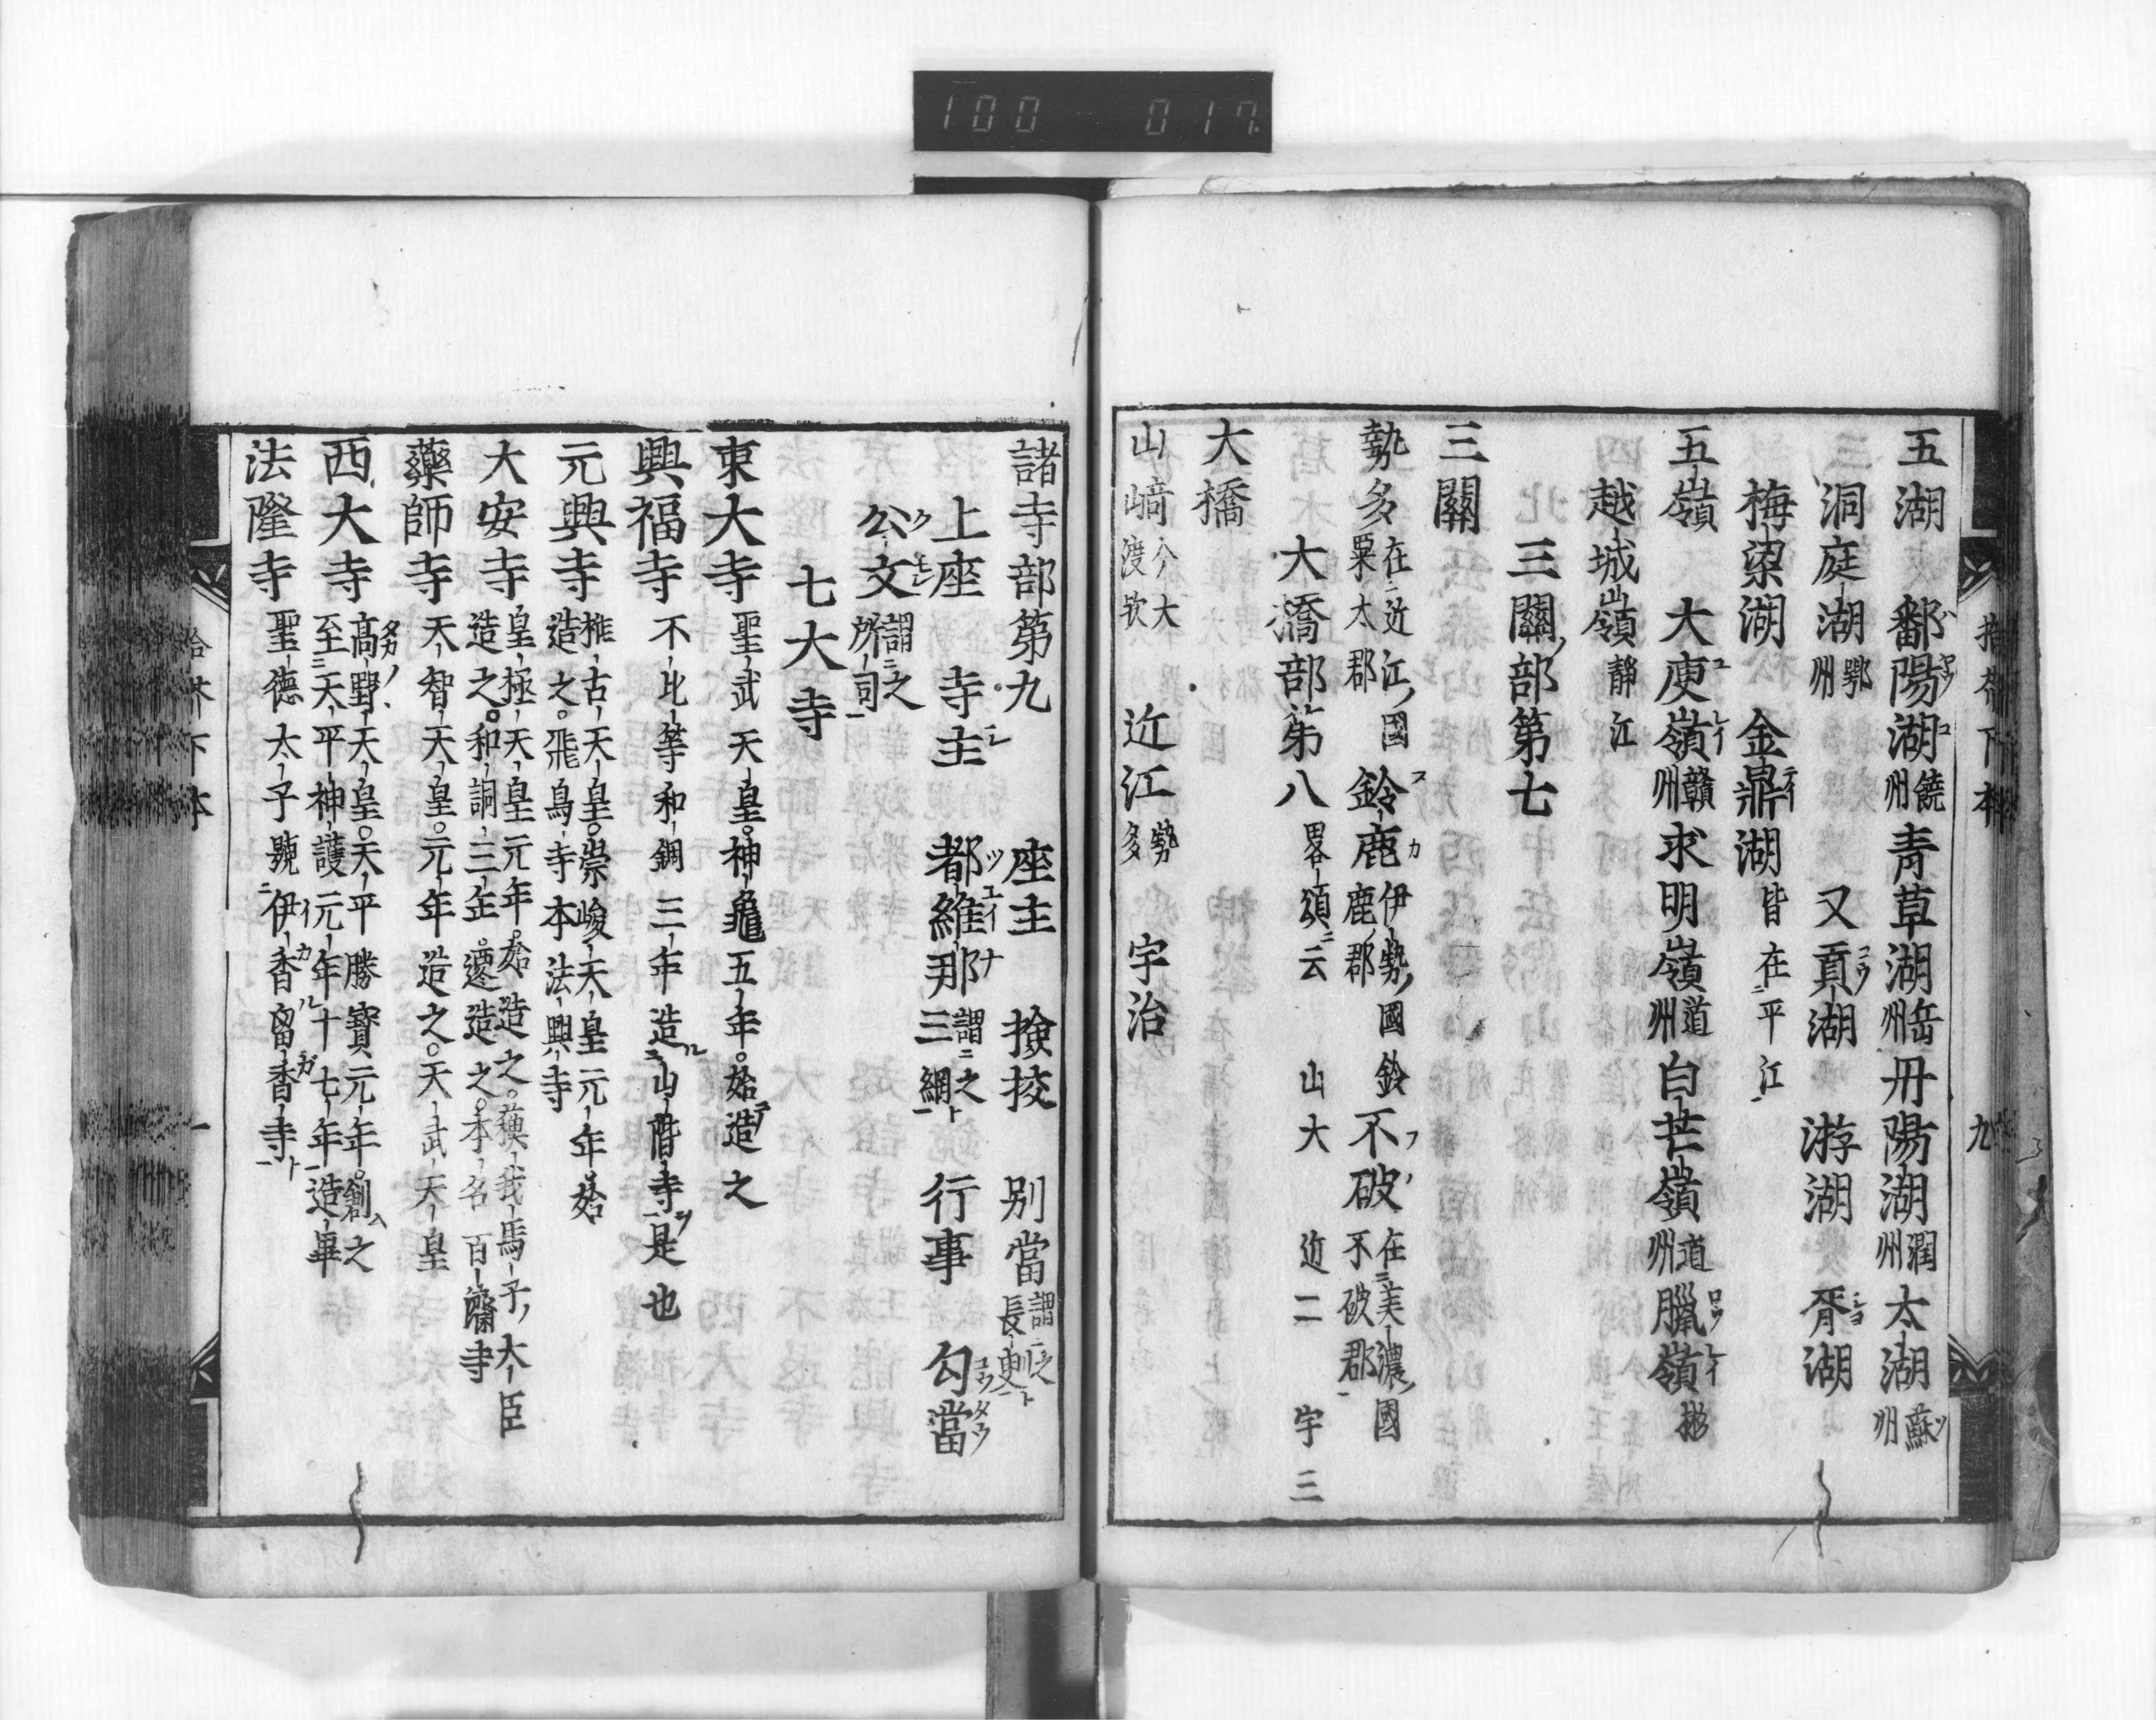 100 017
拾芥下本 九
五湖 鄱陽湖饒州 青草湖岳州 丹陽湖潤州 太湖蘇州
洞庭湖鄂州 又貢湖 游湖 胥湖
梅梁湖 金鼎湖皆在平江
五嶺 大庾嶺贛州 求明嶺道州 白芒嶺道州 臘嶺
越城嶺靜江
三關部第七
三關
勢多在近江國栗太郡 鈴鹿伊勢國鈴鹿郡 不破在美濃國不破郡
大橋部第八畧頌云 山大 近二 宇三
大橋
山﨑今大渡欤 近江勢多 宇治
諸寺部第九 座主 撿挍 別當謂之長吏
上座 寺主 都維那謂之三綱 行事 勾當
公文謂之所司
七大寺
東大寺聖武天皇神龜五年始造之
興福寺不比等和銅三年造山階寺是也
元興寺推古天皇崇峻天皇元年始造之飛鳥寺本法興寺
大安寺皇極天皇元年始造之蘓我馬子大臣造之和銅三年遷造之本名百濟寺
藥師寺天智天皇元年造之天武天皇
西大寺高野天皇天平勝寳元年創之至天平神護元年十七年造畢
法隆寺聖德太子號伊香留香寺
拾芥下本